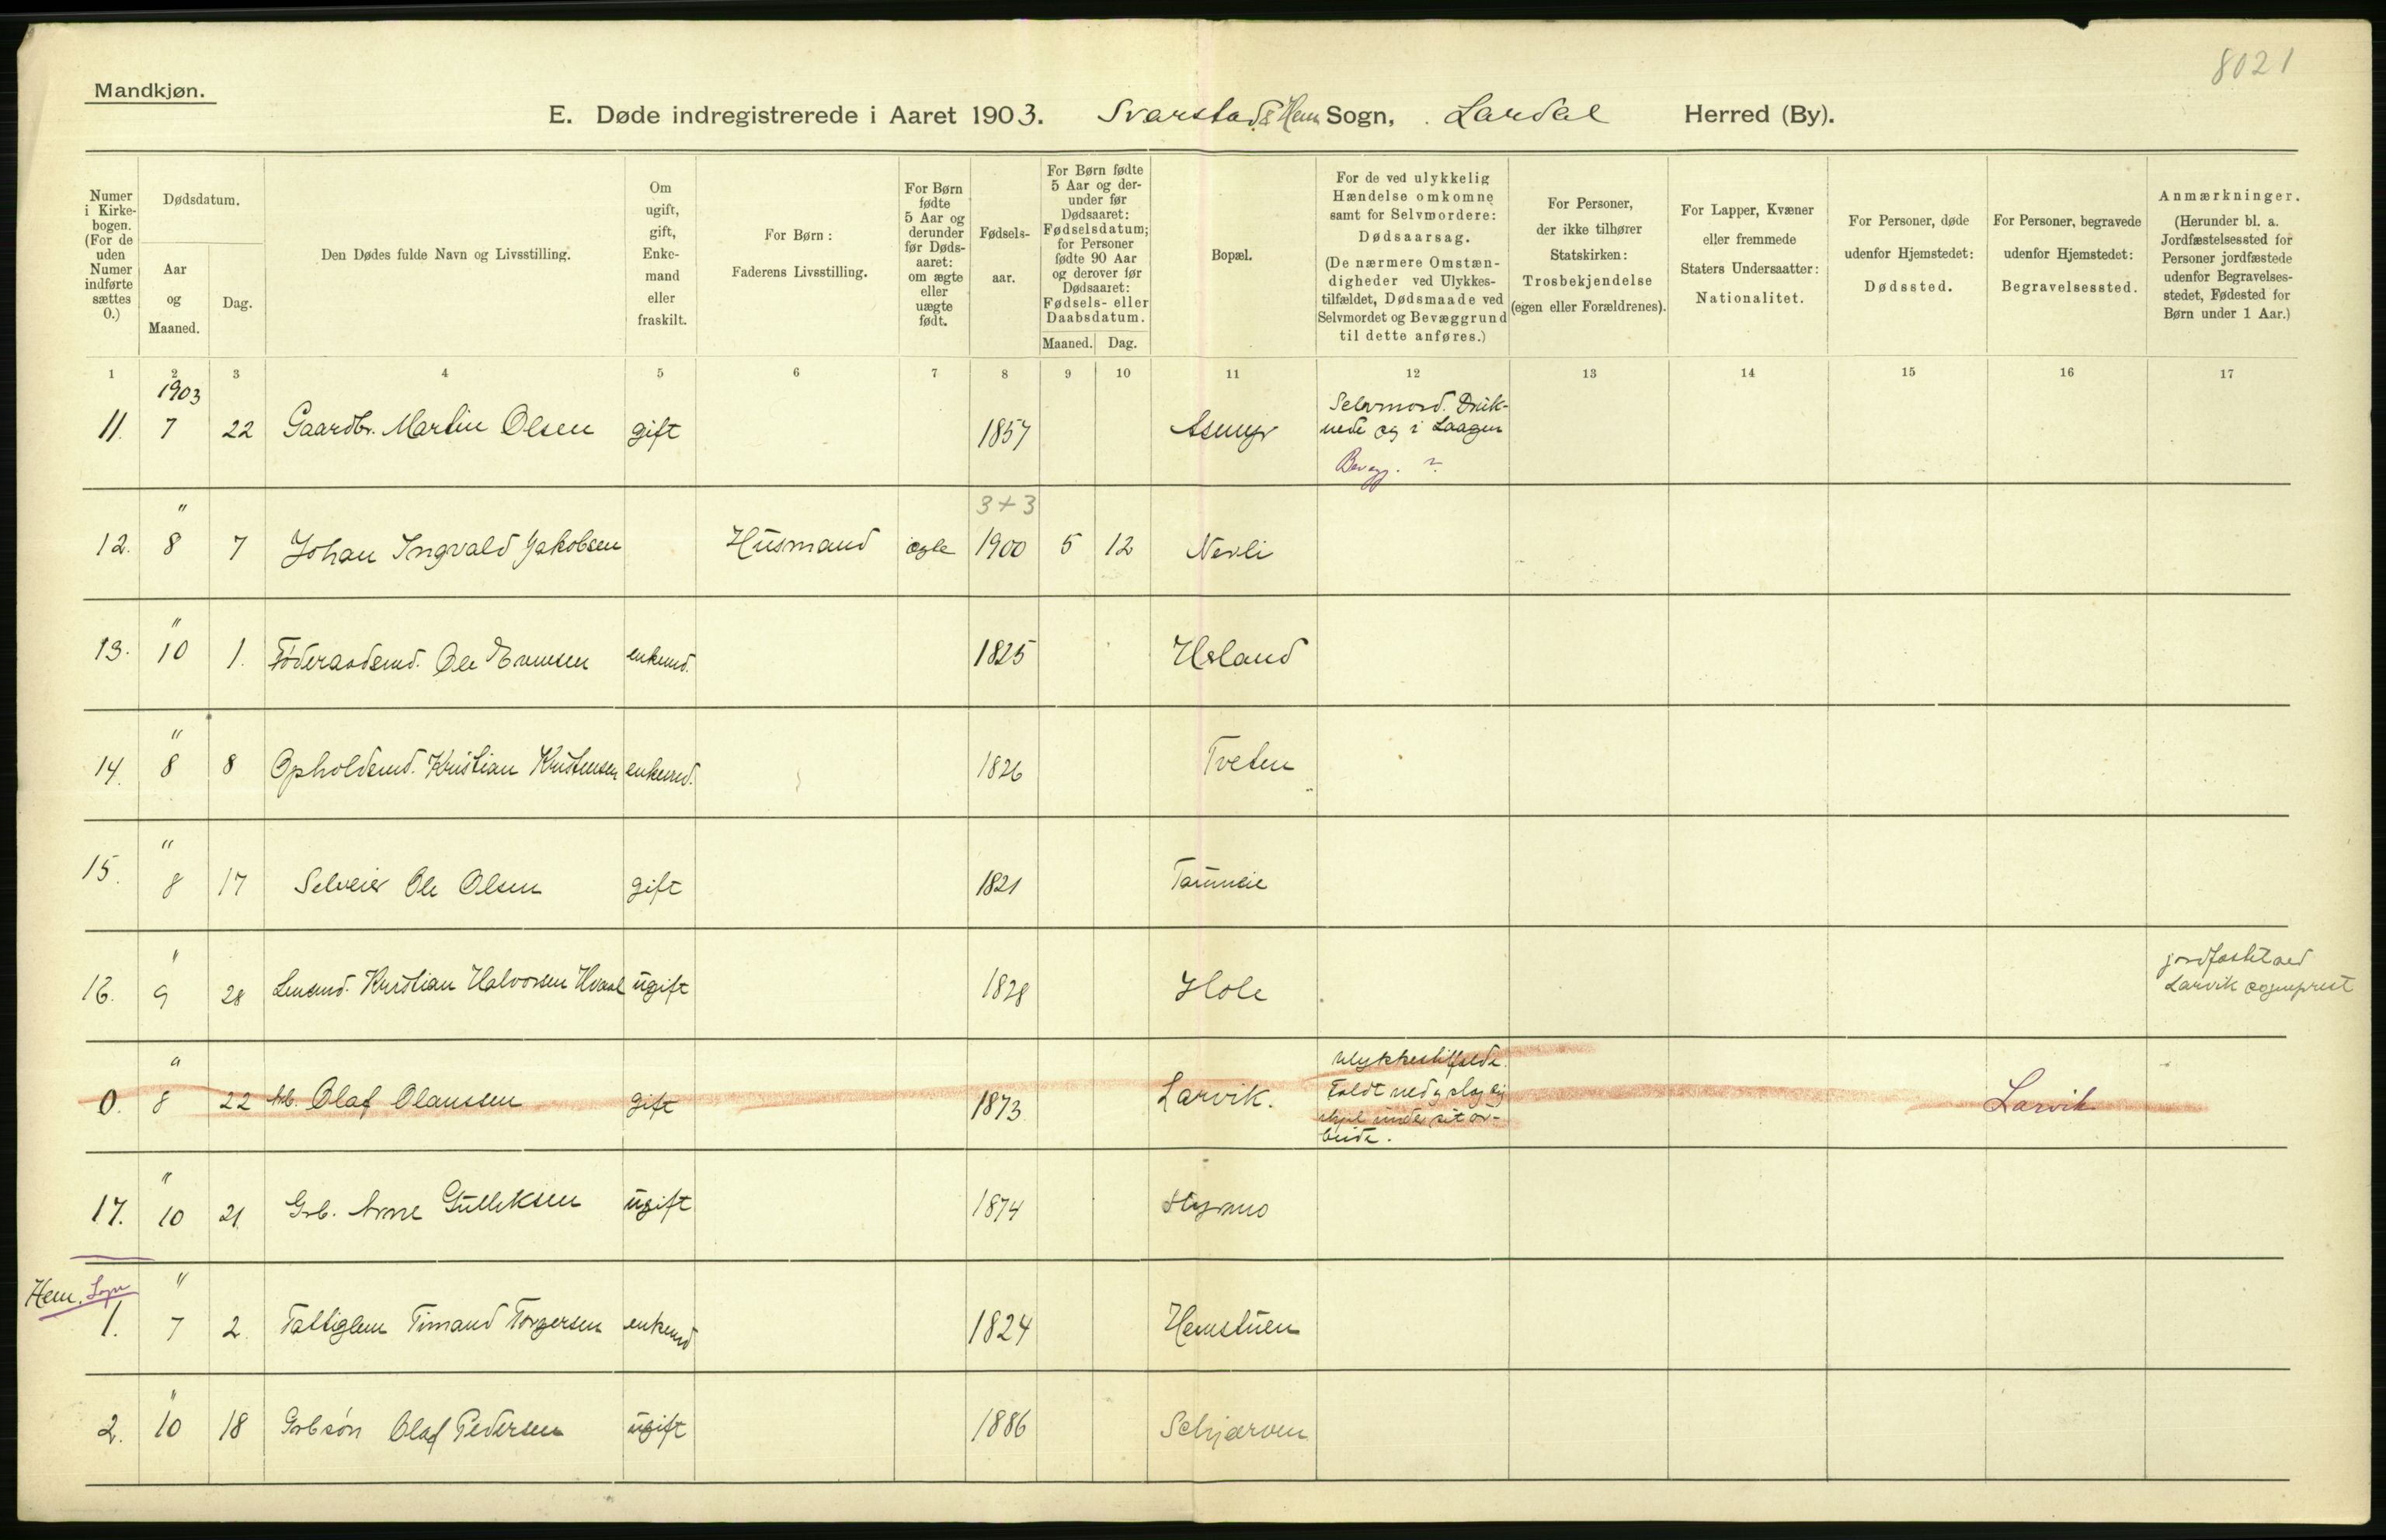 8021
Mandkjøn.
E. Døde indregistrerede i Aaret 1903. Svarstad & Hem Sogn, Lardal Herred (By).
Numer i Kirkebogen. (For de uden Numer indførte sættes 0.)
Dødsdatum.
Aar og Maaned.
Dag.
Den Dødes fulde Navn og Livsstilling.
Om ugift, gift, Enkemand eller fraskilt.
For Børn: Faderens Livsstilling.
For Børn fødte 5 Aar og derunder før Dødsaaret: om ægte eller uægte født.
Fødselsaar.
For Børn fødte 5 Aar og derunder før Dødsaaret: Fødselsdatum; for Personer fødte 90 Aar og derover før Dødsaaret: Fødsels- eller Daabsdatum.
Maaned. Dag.
Bopæl.
For de ved ulykkelig Hændelse omkomne samt for Selvmordere: Dødsaarsag. (De nærmere Omstændigheder ved Ulykkestilfældet, Dødsmaade ved Selvmordet og Bevæggrund til dette anføres.)
For Personer, der ikke tilhører Statskirken: Trosbekjendelse (egen eller Forældrenes).
For Lapper, Kvæner eller fremmede Staters Undersaatter: Nationalitet.
For Personer, døde udenfor Hjemstedet: Dødssted.
For Personer, begravede udenfor Hjemstedet: Begravelsessted.
Anmærkninger. (Herunder bl. a. Jordfæstelsessted for Personer jordfæstede udenfor Begravelsesstedet, Fødested for Børn under 1 Aar.)
1 2 3 4 5 6 7 8 9 10 11 12 13 14 15 16 17
1903
11. 7 22 Gaardbr. Martin Olsen gift 1857 Selvmord. Druknede sig i Laagen
Bevægg. ?
3+3
12. " 8 7 Johan Ingvald Jakobsen Husmand ægte 1900 5 12 Nevli
13. " 10 1. Føderaadsmd. Ole Evensen enkemd. 1825 Høland
14. " 8 8 Opholdsmd. Kristian Kristensen enkemd. 1826 Tveten
15. " 8 17 Selveier Ole Olsen gift 1821
16. " 9 28 Lensmd. Kristian Halvorsen Hvaal ugift 1828 Hole jordfæstet ved
Larvik sogneprest
0. " 8 22 Arb. Olaf Olaussen gift 1873 Larvik. Ulykkestilfælde.
Faldt ned og slog sig
ihjel under sit ar-
beide. Larvik
17. " 10 21. Grb. Arne Gulliksen ugift 1874 Styrmo
Hem. Sogn
1. " 7 2. Fattiglem Timand Torgersen enkemd 1824 Hemstuen
2. " 10 18 Grbsøn Olaf Pedersen ugift 1886 Schjærven